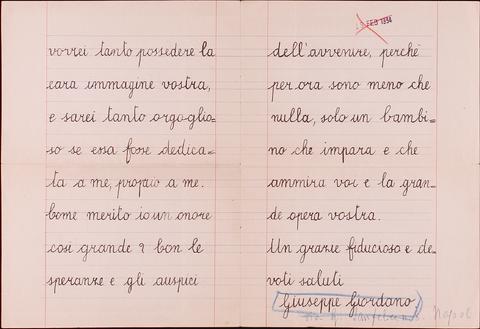 vorrei tanto possedere la
cara immagine vostra,
e sarei tanto orgoglio=
so se essa fosse dedica=
ta a me, propio a me.
Come merito io un onore
così grande? Con le
speranze e gli auspici
FEB 1934
dell'avvenire, perchè
per ora sono meno che
nulla, solo un bambi=
no che impara e che
ammira voi e la gran=
de opera vostra.
Un grazie fiducioso e de=
voti saluti
Giuseppe Giordano
Napoli